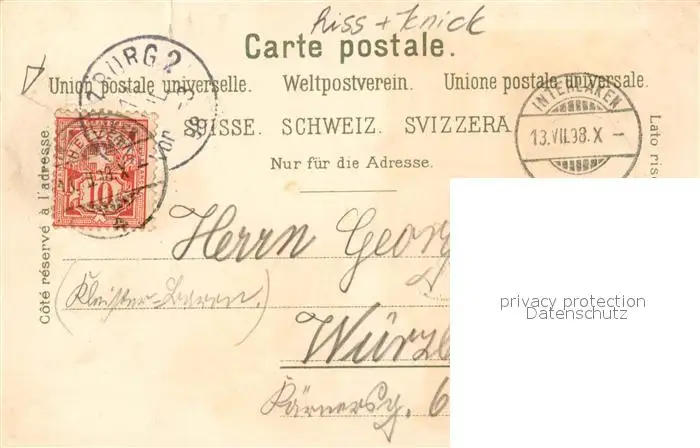 Riss + Knick
Carte postale.
Union postale universelle. Weltpostverein. Unione postale universale.
SUISSE. SCHWEIZ. SVIZZERA
Nur für die Adresse.
Côté réservé à l'adresse.
Lato rise
BURG 2
98
HELVETIA
10
INTERLAKEN
13.VII.98.X –
Herrn Georg
(Kleister-Baron.)
Würzb
Kärnersg. 6
privacy protection
Datenschutz